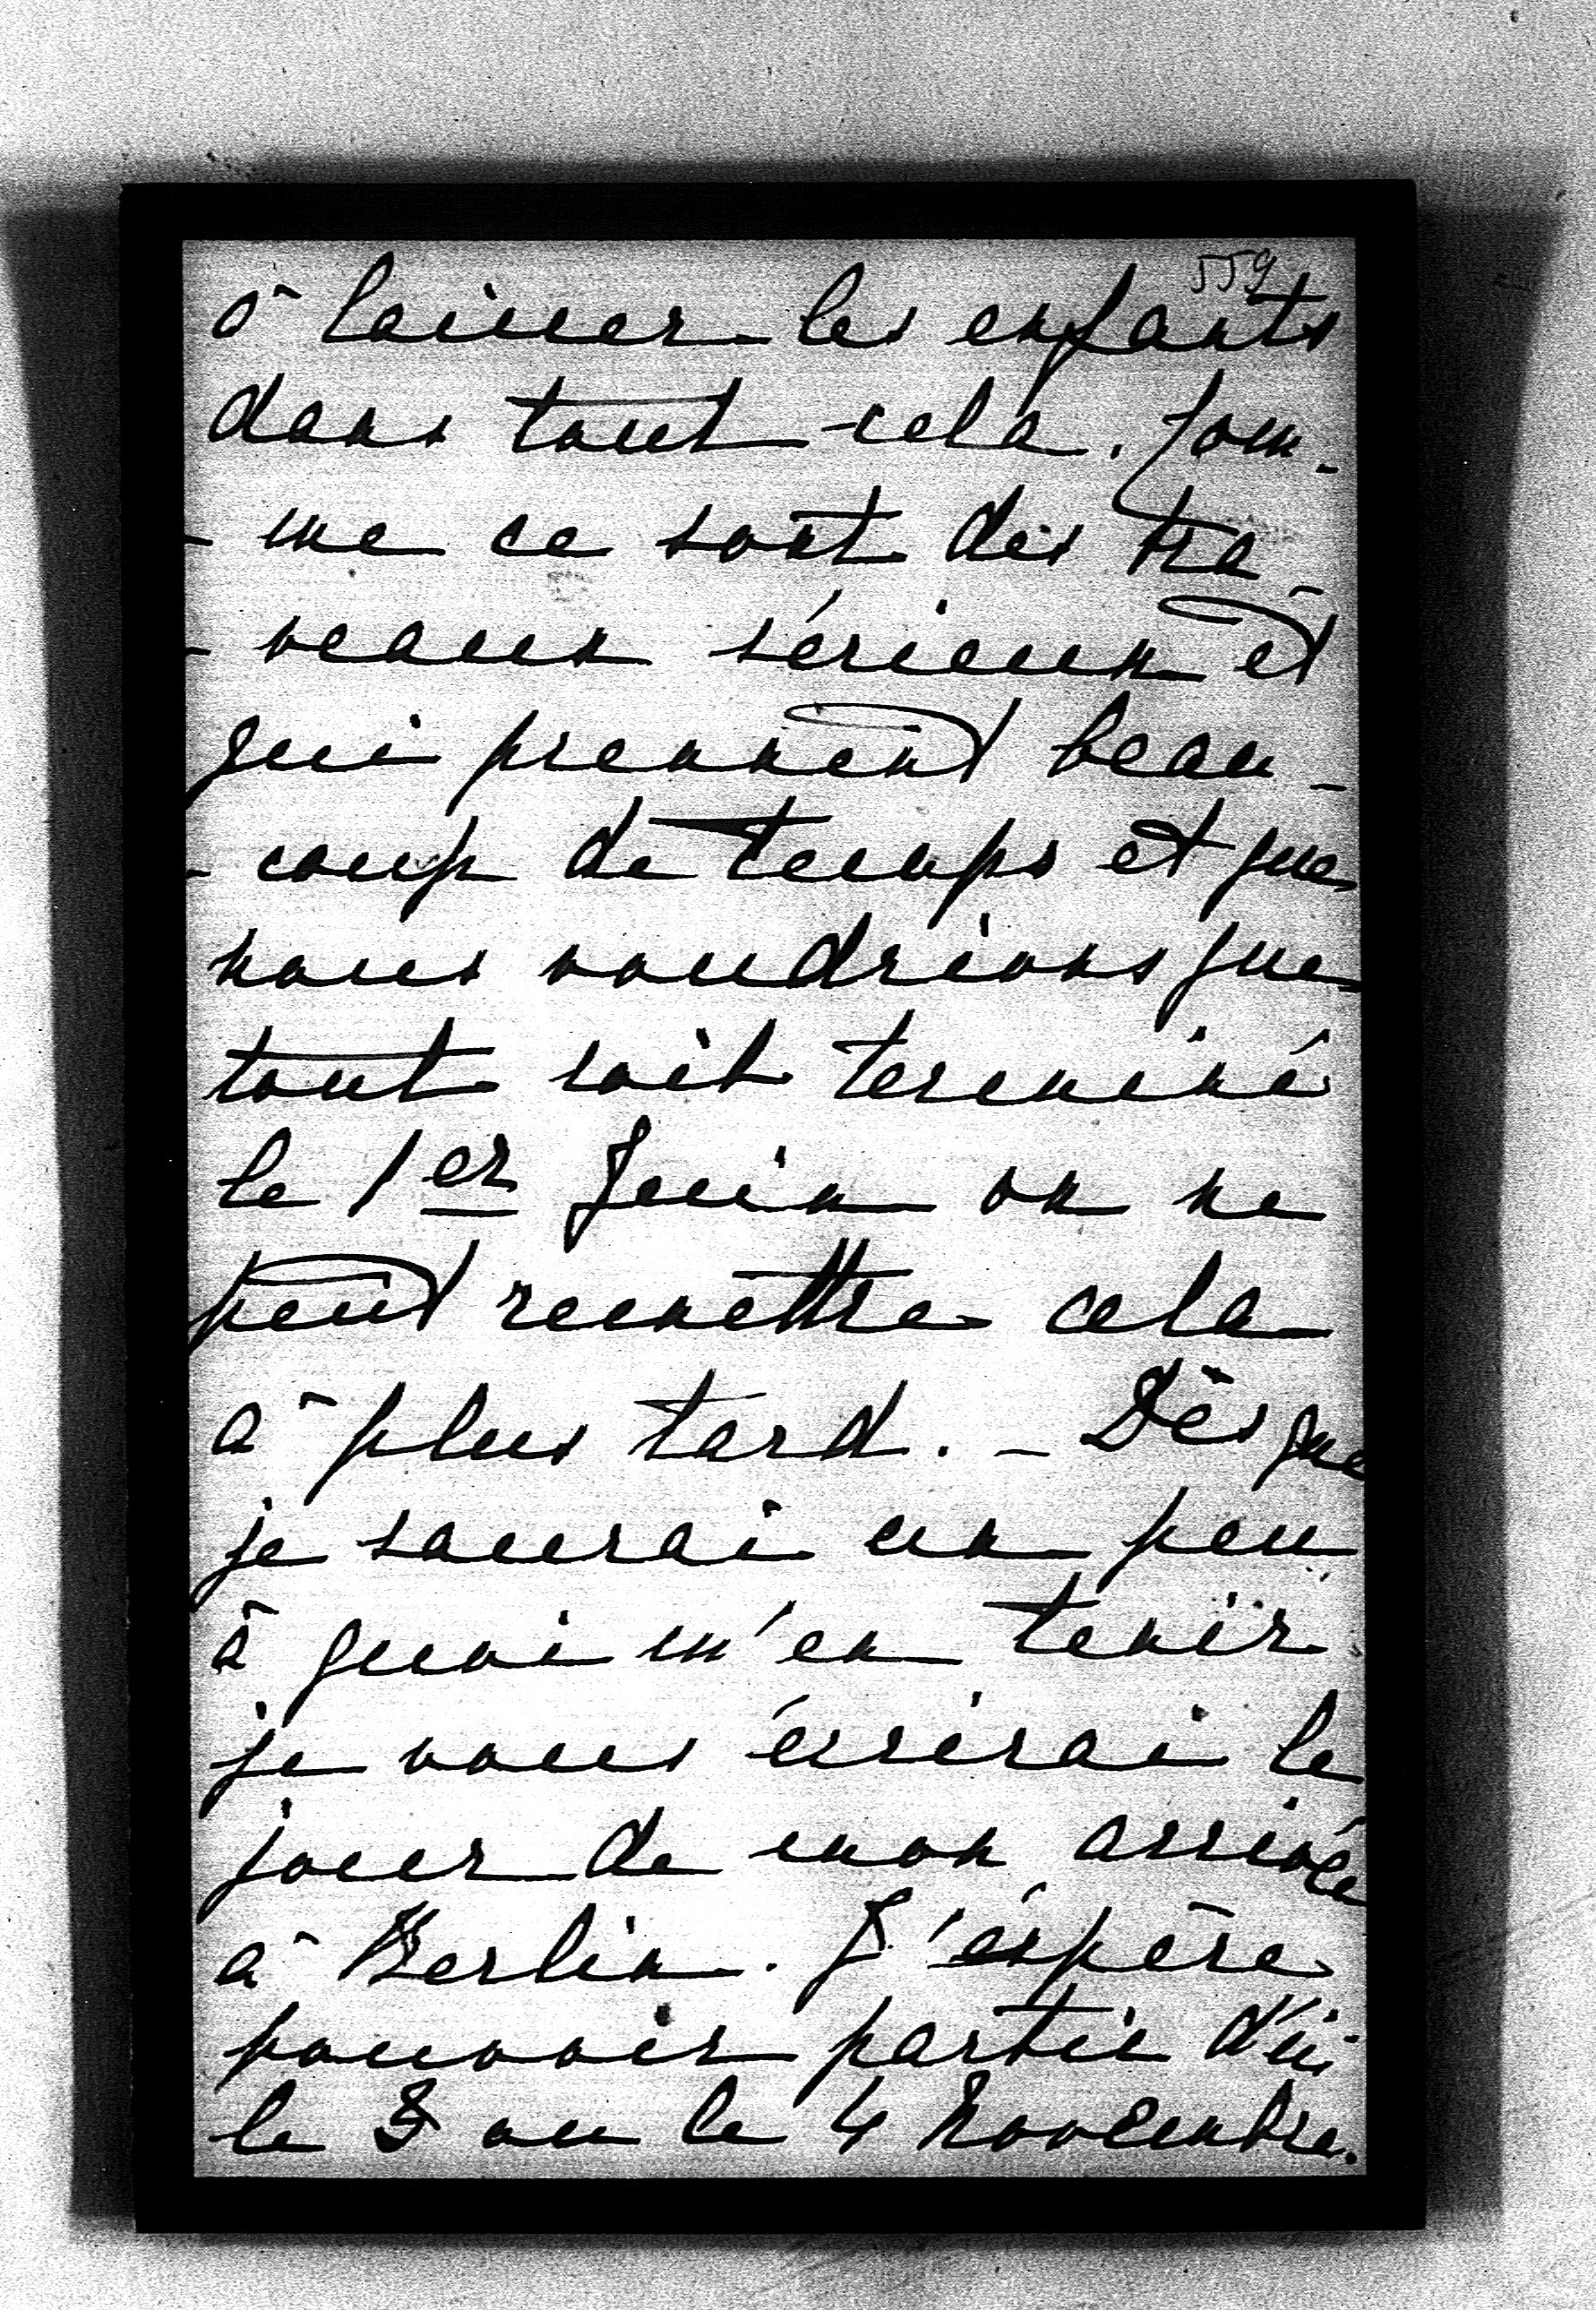 559
à laisser les enfants
dans tout cela. Com-
- me ce sont des tra-
- veaux sérieux et
qui prennent beau-
- coup de temps et que
nous voudrions que
tout soit terminé
le 1er Juin on ne
peut remettre cela
à plus tard. - Dès que
je saurai un peu
à quoi m'en tenir
je vous écrirai le
jour de mon arrivée
à Berlin. J'éspère
pouvoir partir d'ici
le 3 ou le 4 Novembre.